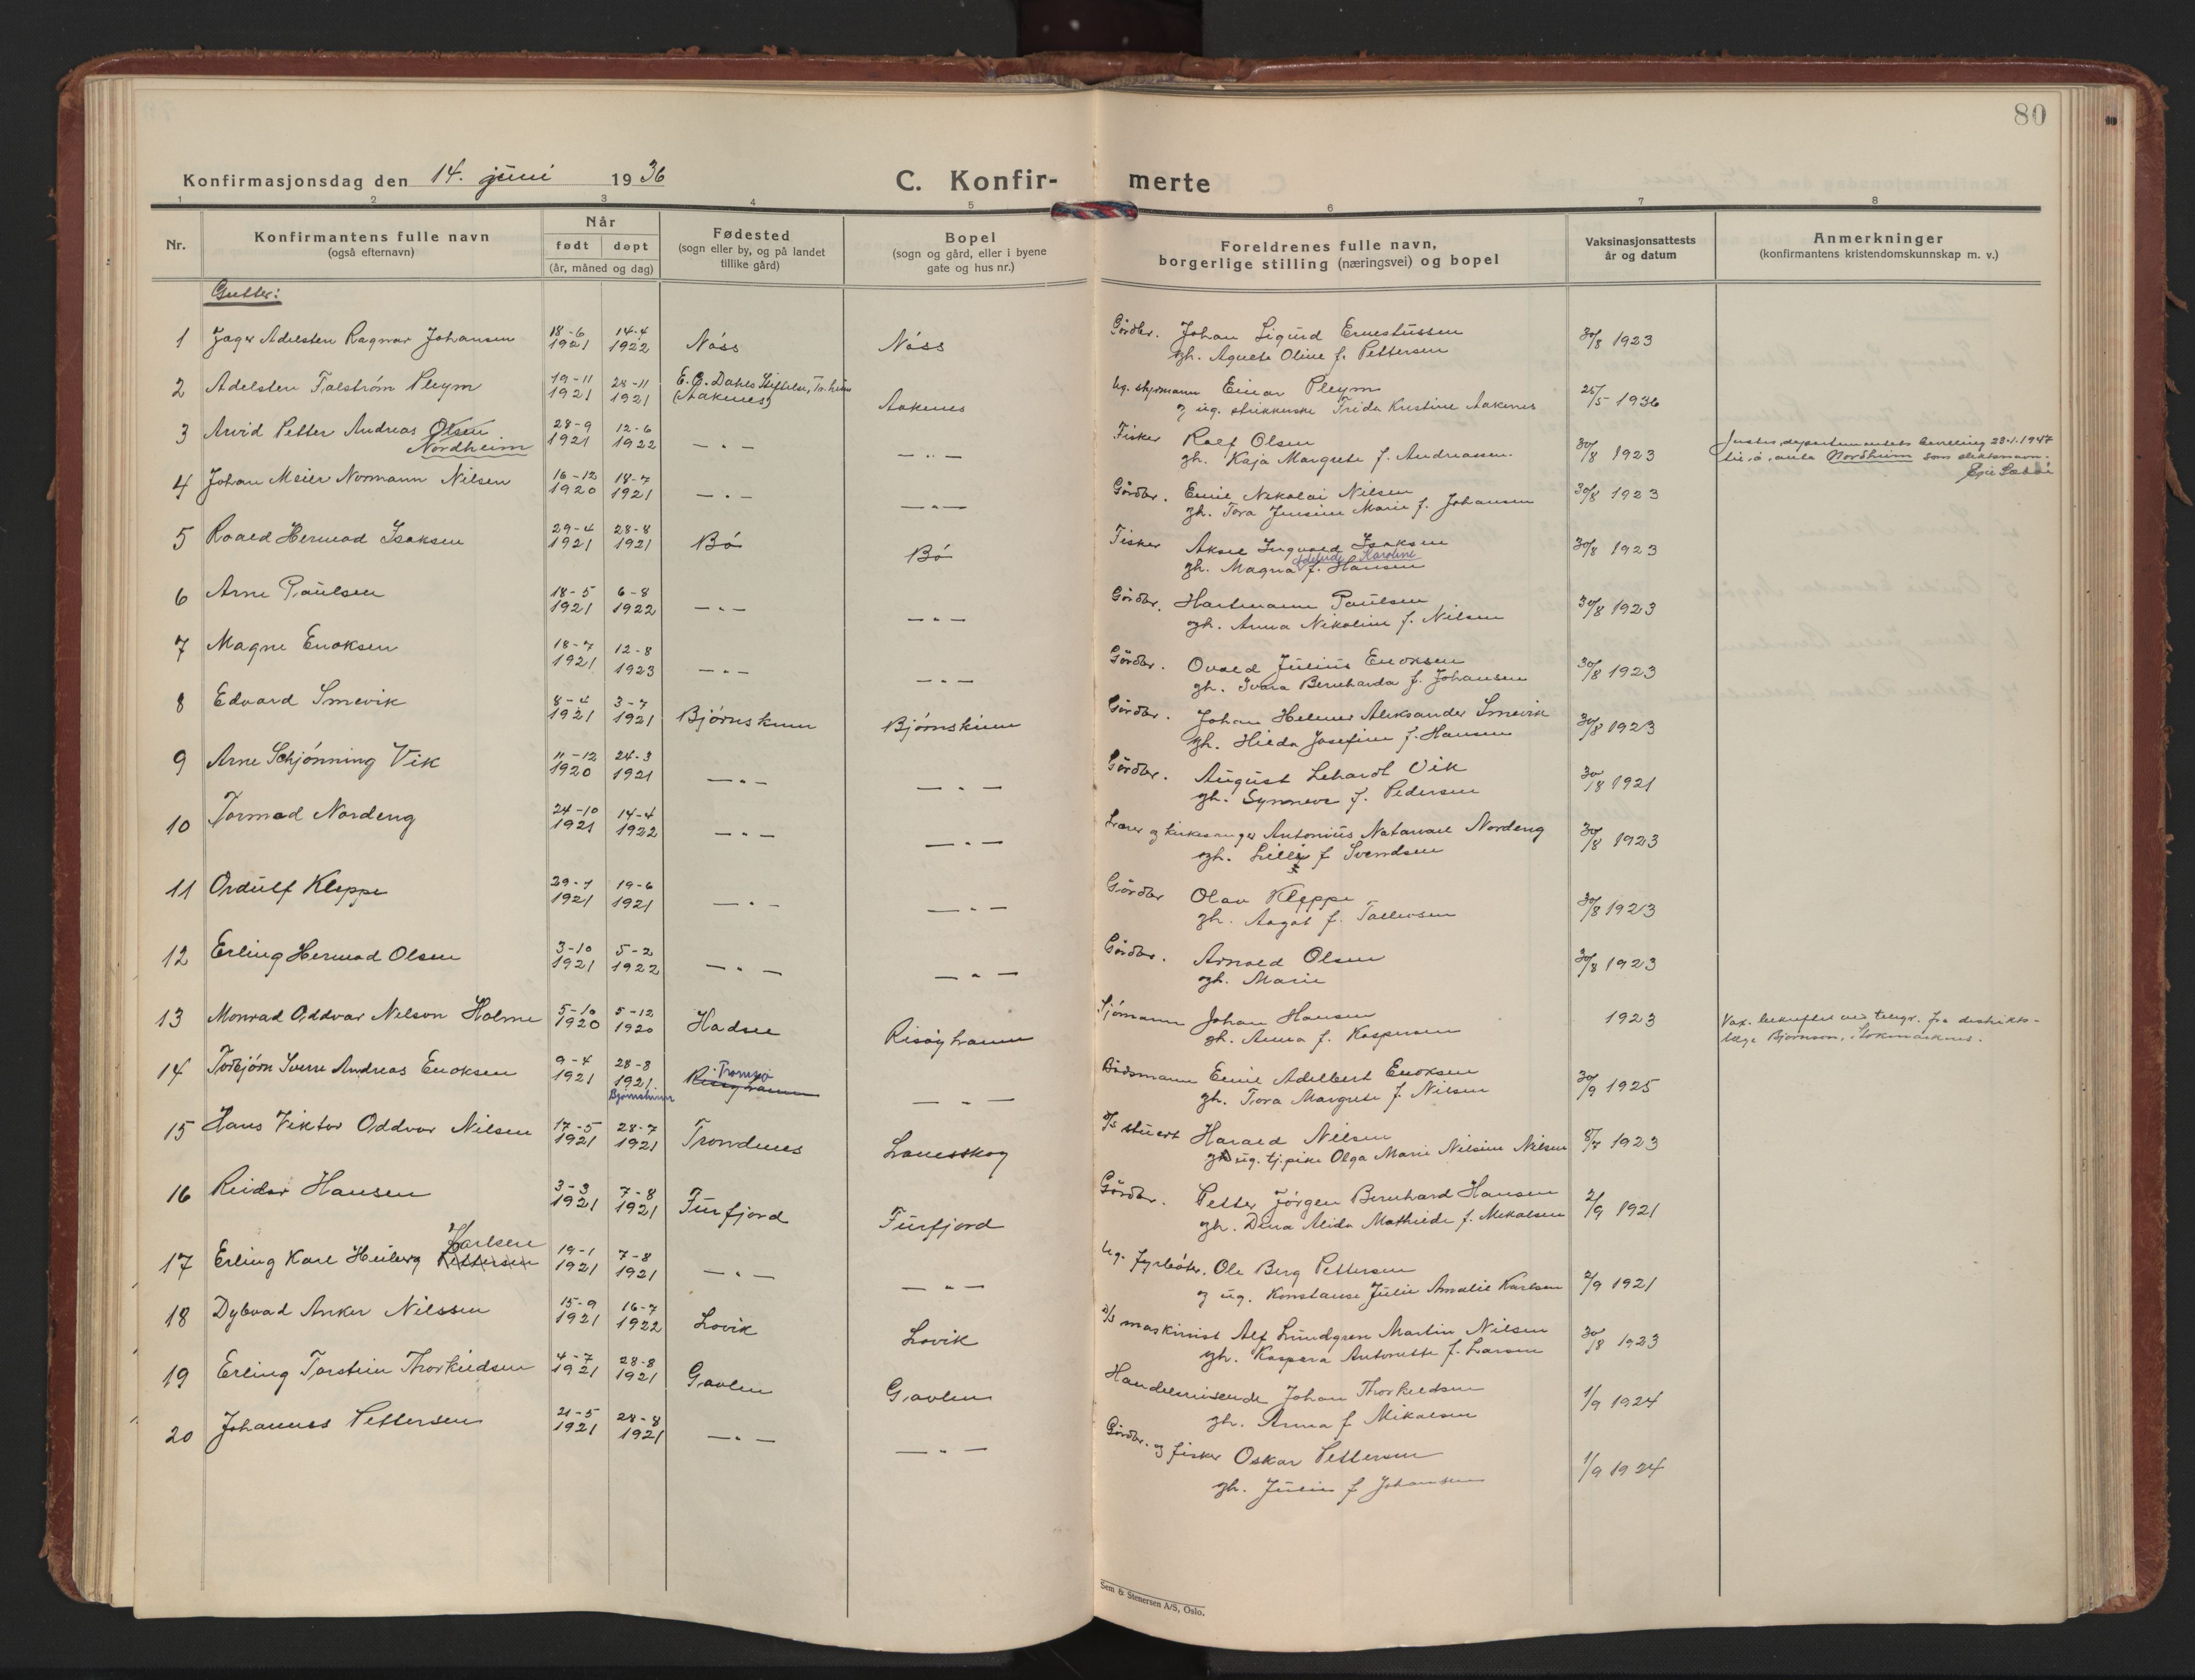 80
Konfirmasjonsdag den 14. juni 1936
C. Konfir- merte
1 2 3 4 5 6 7 8
Nr.
Konfirmantens fulle navn
(også efternavn)
Når
født døpt
(år, måned og dag)
Fødested
(sogn eller by, og på landet
tillike gård)
Bopel
(sogn og gård, eller i byene
gate og hus nr.)
Foreldrenes fulle navn,
borgerlige stilling (næringsvei) og bopel
Vaksinasjonsattests
år og datum
Anmerkninger
(konfirmantens kristendomskunnskap m. v.)
Gutter:
1 Jager Adelsten Ragnar Johansen 18-6 1921 14-4 1922 Nöss Nöss Gårdbr. Johan Sigurd Ernestussen 30/8 1923
gh. Agnete Oline f. Pettersen
2 Adelsten Falstrøm Pleym 19-11 1921 28-11 1921 E. C. Dahls Stiftelse, Tr.heim (Aakenes) Aakenes Ug. styrmann Einar Pleym 25/5 1936
og ug. strikkerske Frida Kristine Aakenes
3 Arvid Petter Andreas Olsen 28-9 1921 12-6 1922 — " — — " — Fisker Rolf Olsen 30/8 1923 Justis.departementets bevilling 23-1-1947
Nordheim gh. Kaja Margrete f. Andreassen. til å anta Nordheim som slektsnavn.
4 Johan Meier Normann Nilsen 16-12 1920 18-7 1921 — " — — " — Gårdbr. Emil Nikolai Nilsen 30/8 1923
gh. Tora Jensine Marie f. Johansen
5 Roald Hermod Isaksen 29-4 1921 28-8 1921 Bö Bö Fisker Aksel Ingvald Isaksen 30/8 1923
Adelaide Karoline
gh. Magna f. Hansen
6 Arne Paulsen 18-5 1921 6-8 1922 — " — — " — Gårdbr. Hartmann Paulsen 30/8 1923
og h. Anna Nikoline f. Nilsen
7 Magne Enoksen 18-7 1921 12-8 1923 — " — — " — Gårdbr. Ovald Julius Enoksen 30/8 1923
gh. Ivara Bernharda f. Johansen
8 Edvard Smevik 8-4 1921 3-7 1921 Bjørnskinn Bjørnskinn Gårdbr. Johan Helmer Aleksander Smevik 30/8 1923
gh. Hilda Josefine f. Hansen
9 Arne Schjønning Vik 11-12 1920 24-3 1921 — " — — " — Gårdbr. August Lehardt Vik 30/8 1921
gh. Synnøve f. Pedersen
10 Tormod Nordeng 24-10 1921 14-4 1922 — " — — " — Lærer og kirkesanger Antonius Natanael Nordeng 30/8 1923
og h. Lilly f Svendsen
11 Ordulf Kleppe 29-1 1921 19-6 1921 — " — — " — Gårdbr Olav Kleppe 30/8 1923
gh. Aagot f. Tollevsen
12 Erling Hermod Olsen 3-10 1921 5-2 1922 — " — — " — Gårdbr. Arnold Olsen 30/8 1923
og h. Marie
13 Monrad Oddvar Nelson Holme 5-10 1920 5-12 1920 Hadsel Risøyhamn Sjømann Johan Hansen 1923 Vax. bekreftet ved telegr. fra distrikts-
gh. Anna f. Kaspersen læge Bjørnson, Stokmarknes.
14 Torbjørn Sverre Andreas Enoksen 9-4 1921 28-8 1921. Bjørnskinn Tromsø Risøyhamn — " — Båtsmann Emil Adelbert Enoksen 30/9 1925
gh. Tora Margrete f Nilsen
15 Hans Viktor Oddvar Nilsen 17-5 1921 28-7 1921 Trondenes Lovesskog D/S stuert Harald Nilsen 8/7 1923
og ug. tj.pike Olga Marie Nilsine Nilsen
16 Reidar Hansen 3-3 1921 7-8 1921 Furfjord Furfjord Gårdbr. Petter Jørgen Bernhard Hansen 2/9 1921
gh. Dina Alida Mathilde f. Mikalsen
Karlsen
17 Erling Karl Heiberg Pettersen 19-1 1921 7-8 1921 — " — — " — Ug. fyrbøter. Ole Berg Pettersen 2/9 1921
og ug. Konstanse Julie Amalie Karlsen
18 Dybvad Anker Nilssen 15-9 1921 16-7 1922 Lovik Lovik D/S maskinist Alf Lundgren Martin Nilsen 30/8 1923
gh. Kaspara Antonette f. Larsen
19 Erling Torstein Thorkildsen 4-7 1921 28-8 1921 Gavlen Gavlen Handelsreisende Johan Thorkildsen 1/9 1924
gh. Anna f Mikalsen
20 Johannes Pettersen 21-5 1921 28-8 1921 — " — — " — Gårdbr. og fisker Oskar Pettersen 1/9 1924
gh. Julie f Johansen
Sem & Stenersen A/S, Oslo.